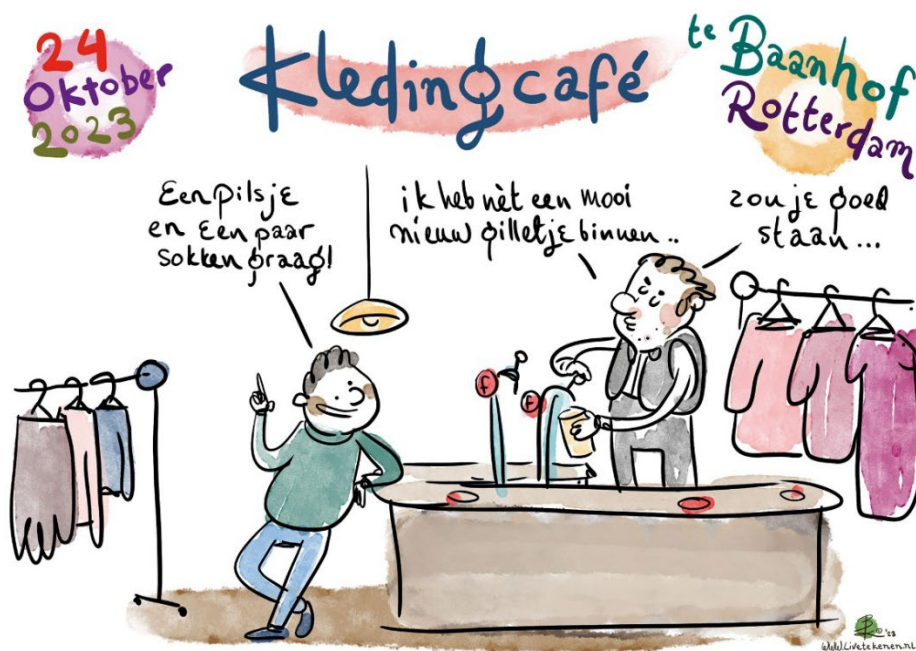 24
Oktober
2023
Kledingcafé
te Baanhof
Rotterdam
Een pilsje
en Een paar
sokken graag!
ik heb nèt een mooi
nieuw gilletje binnen ..
zou je goed
staan ...
F
F
©'23
www.Livetekenen.nl